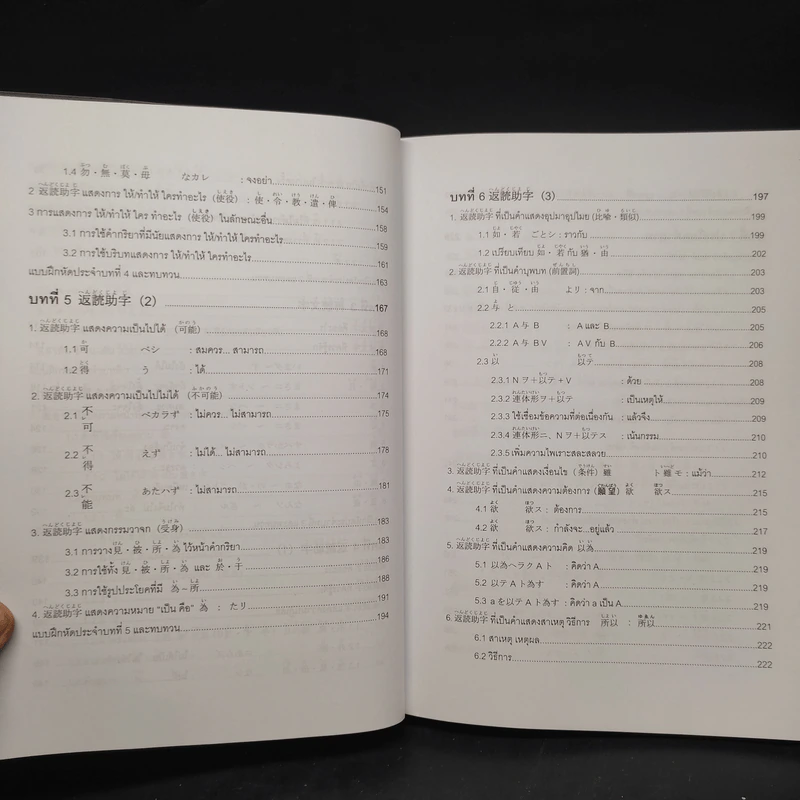 1.4 勿・無・莫・毋 なカレ : จงอย่า 151
2 返読助字 แสดงการ ให้/ทำให้ ใครทำอะไร (使役) : 使・令・教・遣・俾 154
3 การแสดงการ ให้/ทำให้ ใคร ทำอะไร (使役) ในลักษณะอื่น 158
3.1 การใช้คำกริยาที่มีนัยแสดงการ ให้/ทำให้ ใครทำอะไร 159
3.2 การใช้บริบทแสดงการ ให้/ทำให้ ใครทำอะไร 160
แบบฝึกหัดประจำบทที่ 4 และทบทวน 163
บทที่ 5 返読助字 (2) 167
1. 返読助字 แสดงความเป็นไปได้ (可能) 168
1.1 可 ベシ : สมควร... สามารถ 168
1.2 得 う : ได้ 171
2. 返読助字 แสดงความเป็นไปไม่ได้ (不可能) 174
2.1 不可 ベカラず : ไม่ควร... ไม่สามารถ 175
2.2 不得 えず : ไม่ได้... ไม่สามารถ 178
2.3 不能 あたハず : ไม่สามารถ 181
3. 返読助字 แสดงกรรมวาจก (受身) 183
3.1 การวาง 見・被・所・為 ไว้หน้าคำกริยา 183
3.2 การใช้ทั้ง 見・被・所・為 และ 於・于 186
3.3 การใช้รูปประโยคที่มี 為~所 188
4. 返読助字 แสดงความหมาย "เป็น คือ" 為 : たり 191
แบบฝึกหัดประจำบทที่ 5 และทบทวน 194
บทที่ 6 返読助字 (3) 197
1. 返読助字 ที่เป็นคำแสดงอุปมาอุปไมย (比喩・類似) 199
1.1 如・若 ごとシ : ราวกับ 199
1.2 เปรียบเทียบ 如・若 กับ 猶・由 202
2. 返読助字 ที่เป็นคำบุพบท (前置詞) 203
2.1 自・従・由 よリ : จาก 203
2.2 与 と 205
2.2.1 A 与 B : A และ B 205
2.2.2 A 与 B V : A V กับ B 206
2.3 以 以テ 208
2.3.1 N ヲ+以テ+V : ด้วย 208
2.3.2 連体形ヲ+以テ : เป็นเหตุให้ 209
2.3.3 ใช้เชื่อมข้อความที่ต่อเนื่องกัน : แล้วจึง 209
2.3.4 連体形ニ、Nヲ+以テス : เน้นกรรม 210
2.3.5 เพิ่มความไพเราะสละสลวย 210
3. 返読助字 ที่เป็นคำแสดงเงื่อนไข (条件) 雖 ト雖モ : แม้ว่า 212
4. 返読助字 ที่เป็นคำแสดงความต้องการ (願望) 欲 欲ス 215
4.1 欲 欲ス : ต้องการ 215
4.2 欲 欲ス : กำลังจะ...อยู่แล้ว 217
5. 返読助字 ที่เป็นคำแสดงความคิด 以為 219
5.1 以為ヘラク A ト : คิดว่า A 219
5.2 以テ A ト為す : คิดว่า A 219
5.3 a を以テ A ト為す : คิดว่า a เป็น A 219
6. 返読助字 ที่เป็นคำแสดงสาเหตุ วิธีการ 所以 : 所以 221
6.1 สาเหตุ เหตุผล 222
6.2 วิธีการ 222